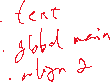 . text
. global main
. align 2